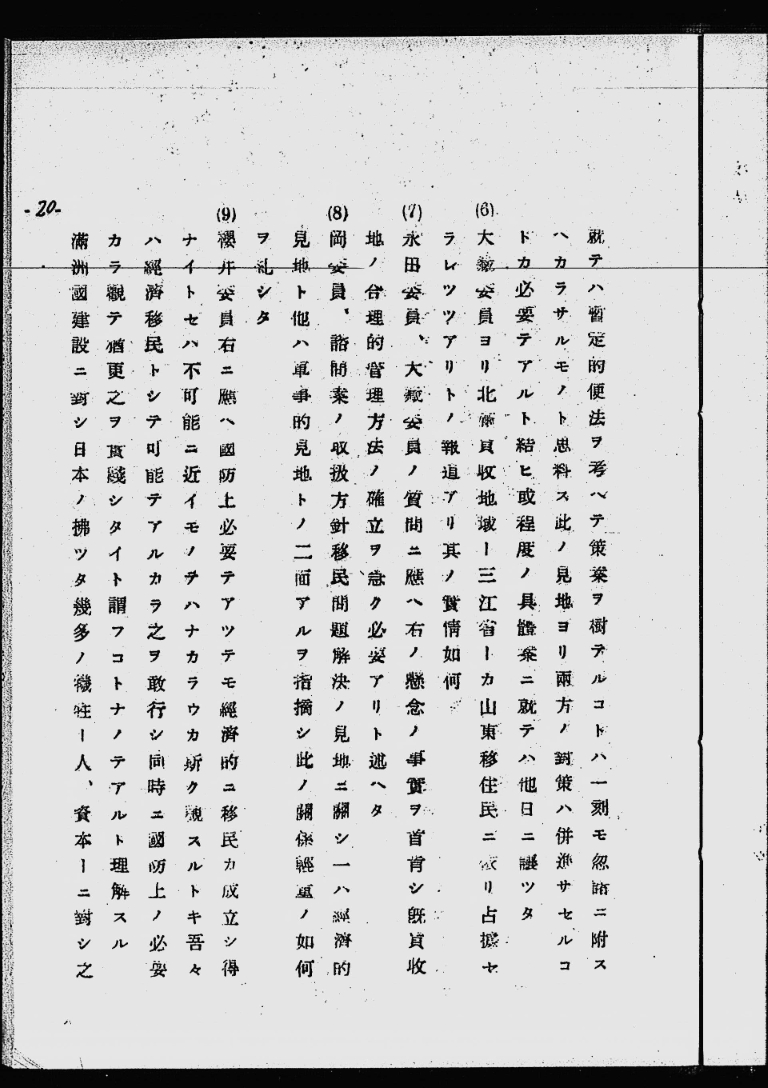 就テハ暫定的便法ヲ考ヘテ策案ヲ樹テルコトハ一刻モ忽諸ニ附ス
ヘカラサルモノト思料ス此ノ見地ヨリ兩方ノ對策ハ併進サセルコ
トカ必要テアルト結ヒ或程度ノ具體案ニ就テハ他日ニ讓ツタ
(6) 大藏委員ヨリ北滿買收地域ー三江省ーカ山東移住民ニ依リ占據セ
ラレツツアリトノ報道アリ其ノ實情如何
(7) 永田委員、大藏委員ノ質問ニ應ヘ右ノ懸念ノ事實ヲ首肯シ旣買收
地ノ合理的管理方法ノ確立ヲ急ク必要アリト述ヘタ
(8) 岡委員、諮問案ノ取扱方針移民問題解決ノ見地ニ關シ一ハ經濟的
見地ト他ハ軍事的見地トノ二面アルヲ指摘シ此ノ關係輕重ノ如何
ヲ糺シタ
(9) 櫻井委員右ニ應ヘ國防上必要テアツテモ經濟的ニ移民カ成立シ得
ナイトセハ不可能ニ近イモノテハナカラウカ斯ク觀スルトキ吾々
ハ經濟移民トシテ可能テアルカラ之ヲ敢行シ同時ニ國防上ノ必要
カラ觀テ猶更之ヲ實踐シタイト謂フコトナノテアルト理解スル
滿洲國建設ニ對シ日本ノ拂ツタ幾多ノ犧牲ー人、資本ーニ對シ之
-20-